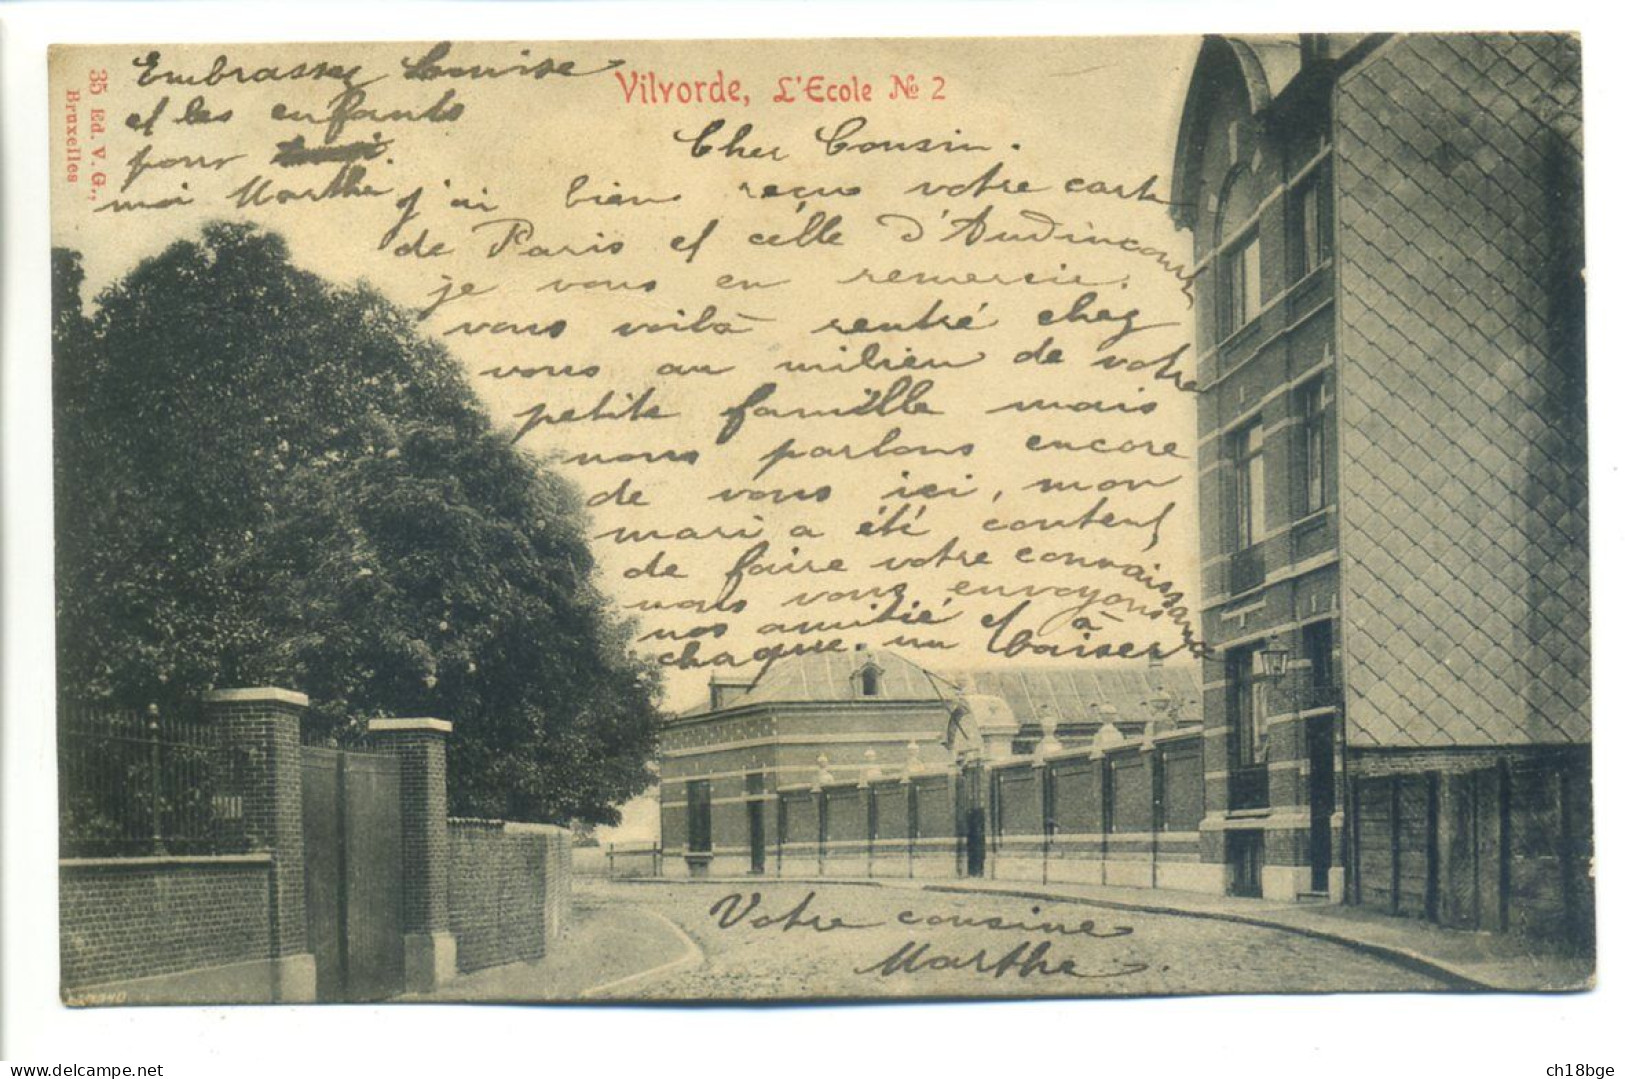 35 Ed. V. G.,
Bruxelles
Vilvorde, L'Ecole No 2
Embrassez Louise
et les enfants
pour
moi Marthe
Cher Cousin.
j'ai bien reçus votre carte
de Paris et celle d'Audincourt
je vous en remercie.
vous voilà rentré chez
vous au milieu de votre
petite famille mais
nous parlons encore
de vous ici, mon
mari a été content
de faire votre connaissance
nous vous envoyons
nos amitié et à
chaque un baiser
Votre cousine
Marthe.
Delcampe.net
ch18bge